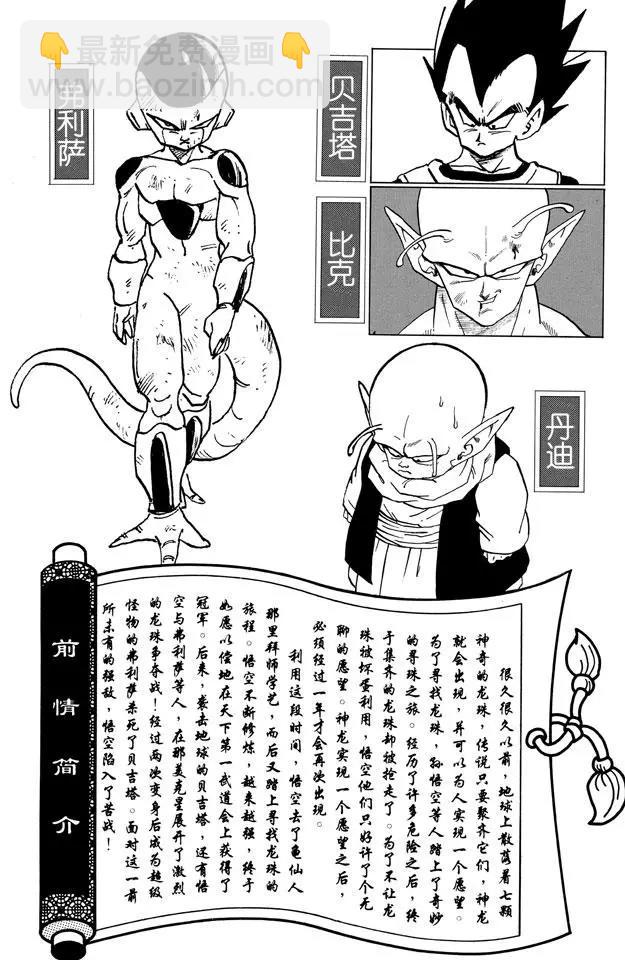 👇最新免费漫画👇
www.baozimh.com
弗利萨
贝吉塔
比克
丹迪
前情简介
很久很久以前，地球上散落着七颗
神奇的龙珠，传说只要聚齐它们，神龙
就会出现，并可以为人实现一个愿望。
为了寻找龙珠，孙悟空等人踏上了奇妙
的寻珠之旅。经历了许多危险之后，终
于集齐的龙珠却被抢走了。为了不让龙
珠被坏蛋利用，悟空他们只好许了个无
聊的愿望。神龙实现一个愿望之后，
必须经过一年才会再次出现。
利用这段时间，悟空去了龟仙人
那里拜师学艺，而后又踏上寻找龙珠的
旅程。悟空不断修炼，越来越强，终于
如愿以偿地在天下第一武道会上获得了
冠军。后来，袭击地球的贝吉塔，还有悟
空与弗利萨等人，在那美克星展开了激烈
的龙珠争夺战！经过两次变身后成为超级
怪物的弗利萨杀死了贝吉塔。面对这一前
所未有的强敌，悟空陷入了苦战！